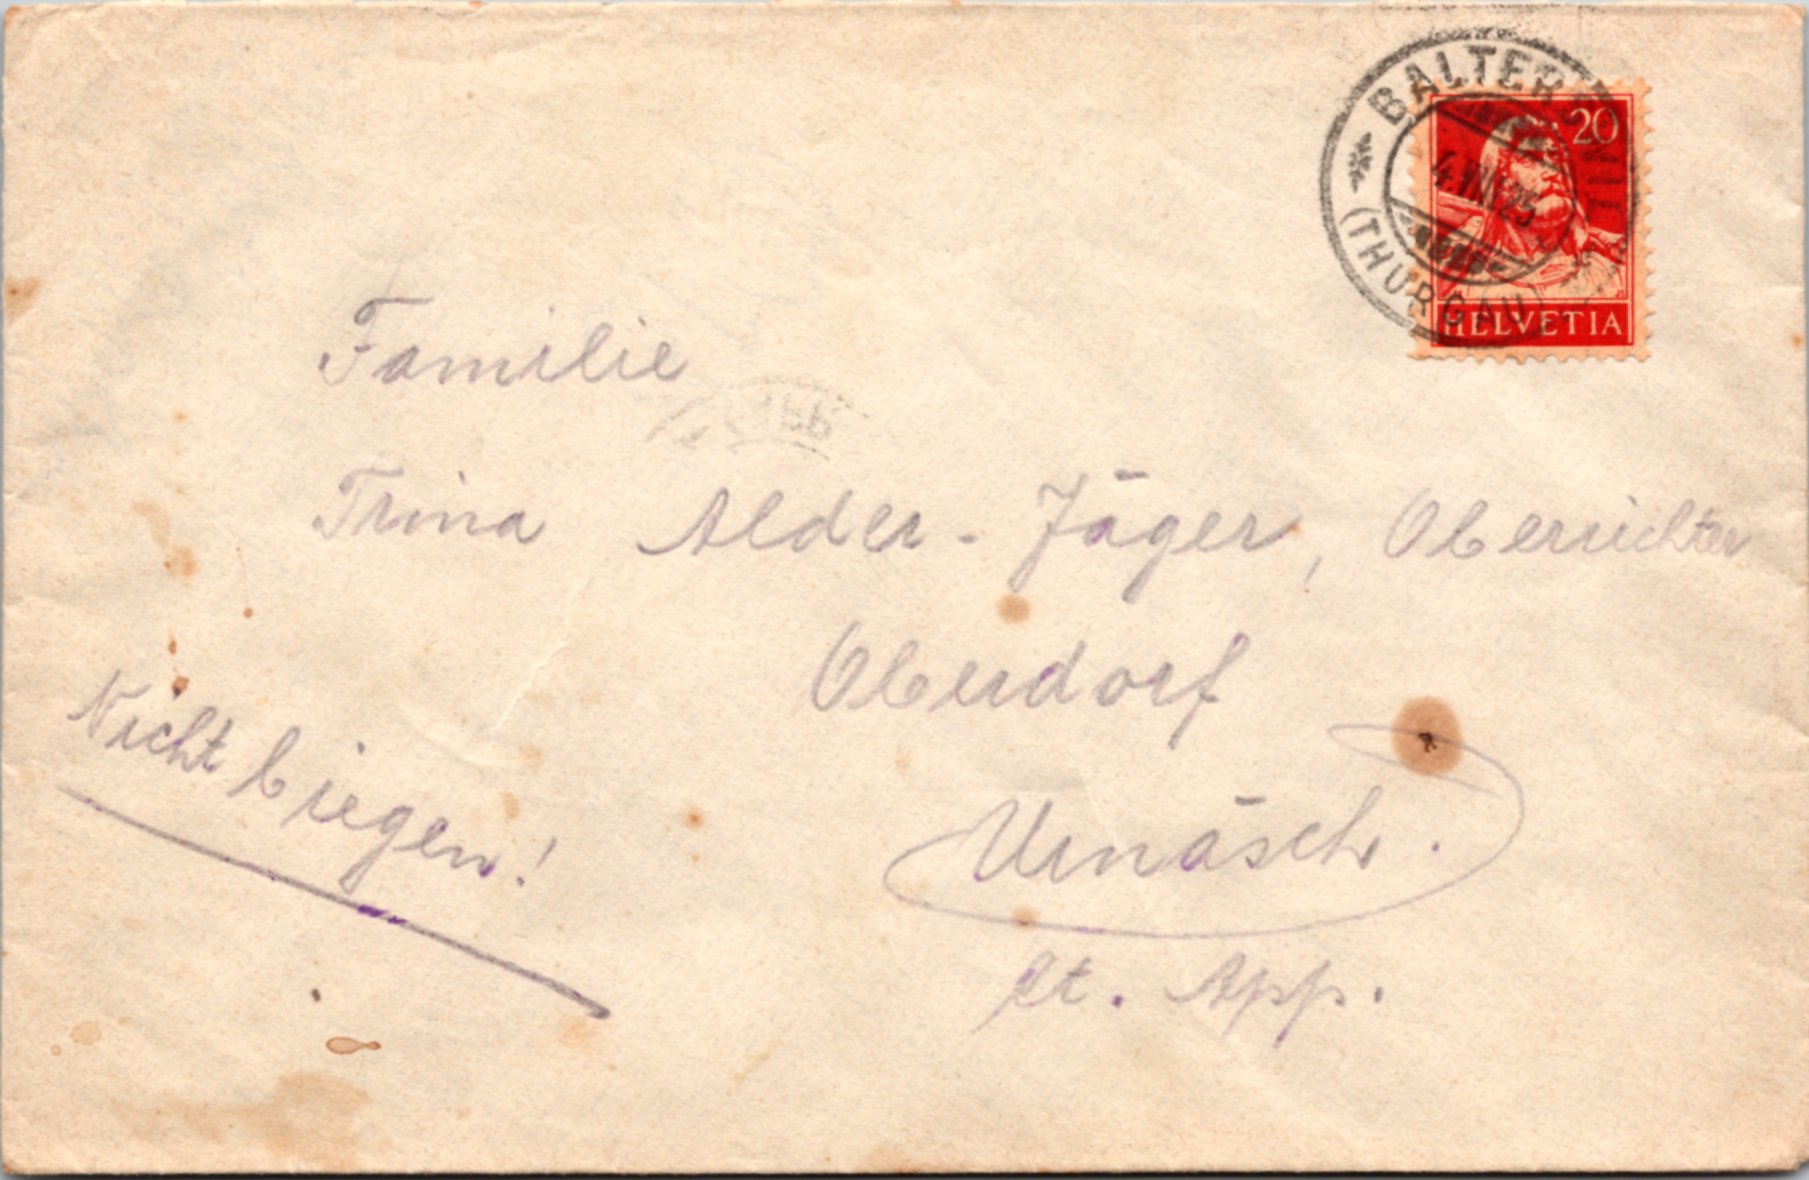 BALTERSWIL
20
4.VIII.25
(THURGAU)
HELVETIA
Familie
Trina Alder - Jäger, Oberrichter
Oberdorf
Nicht biegen!
Urnäsch.
Kt. App.